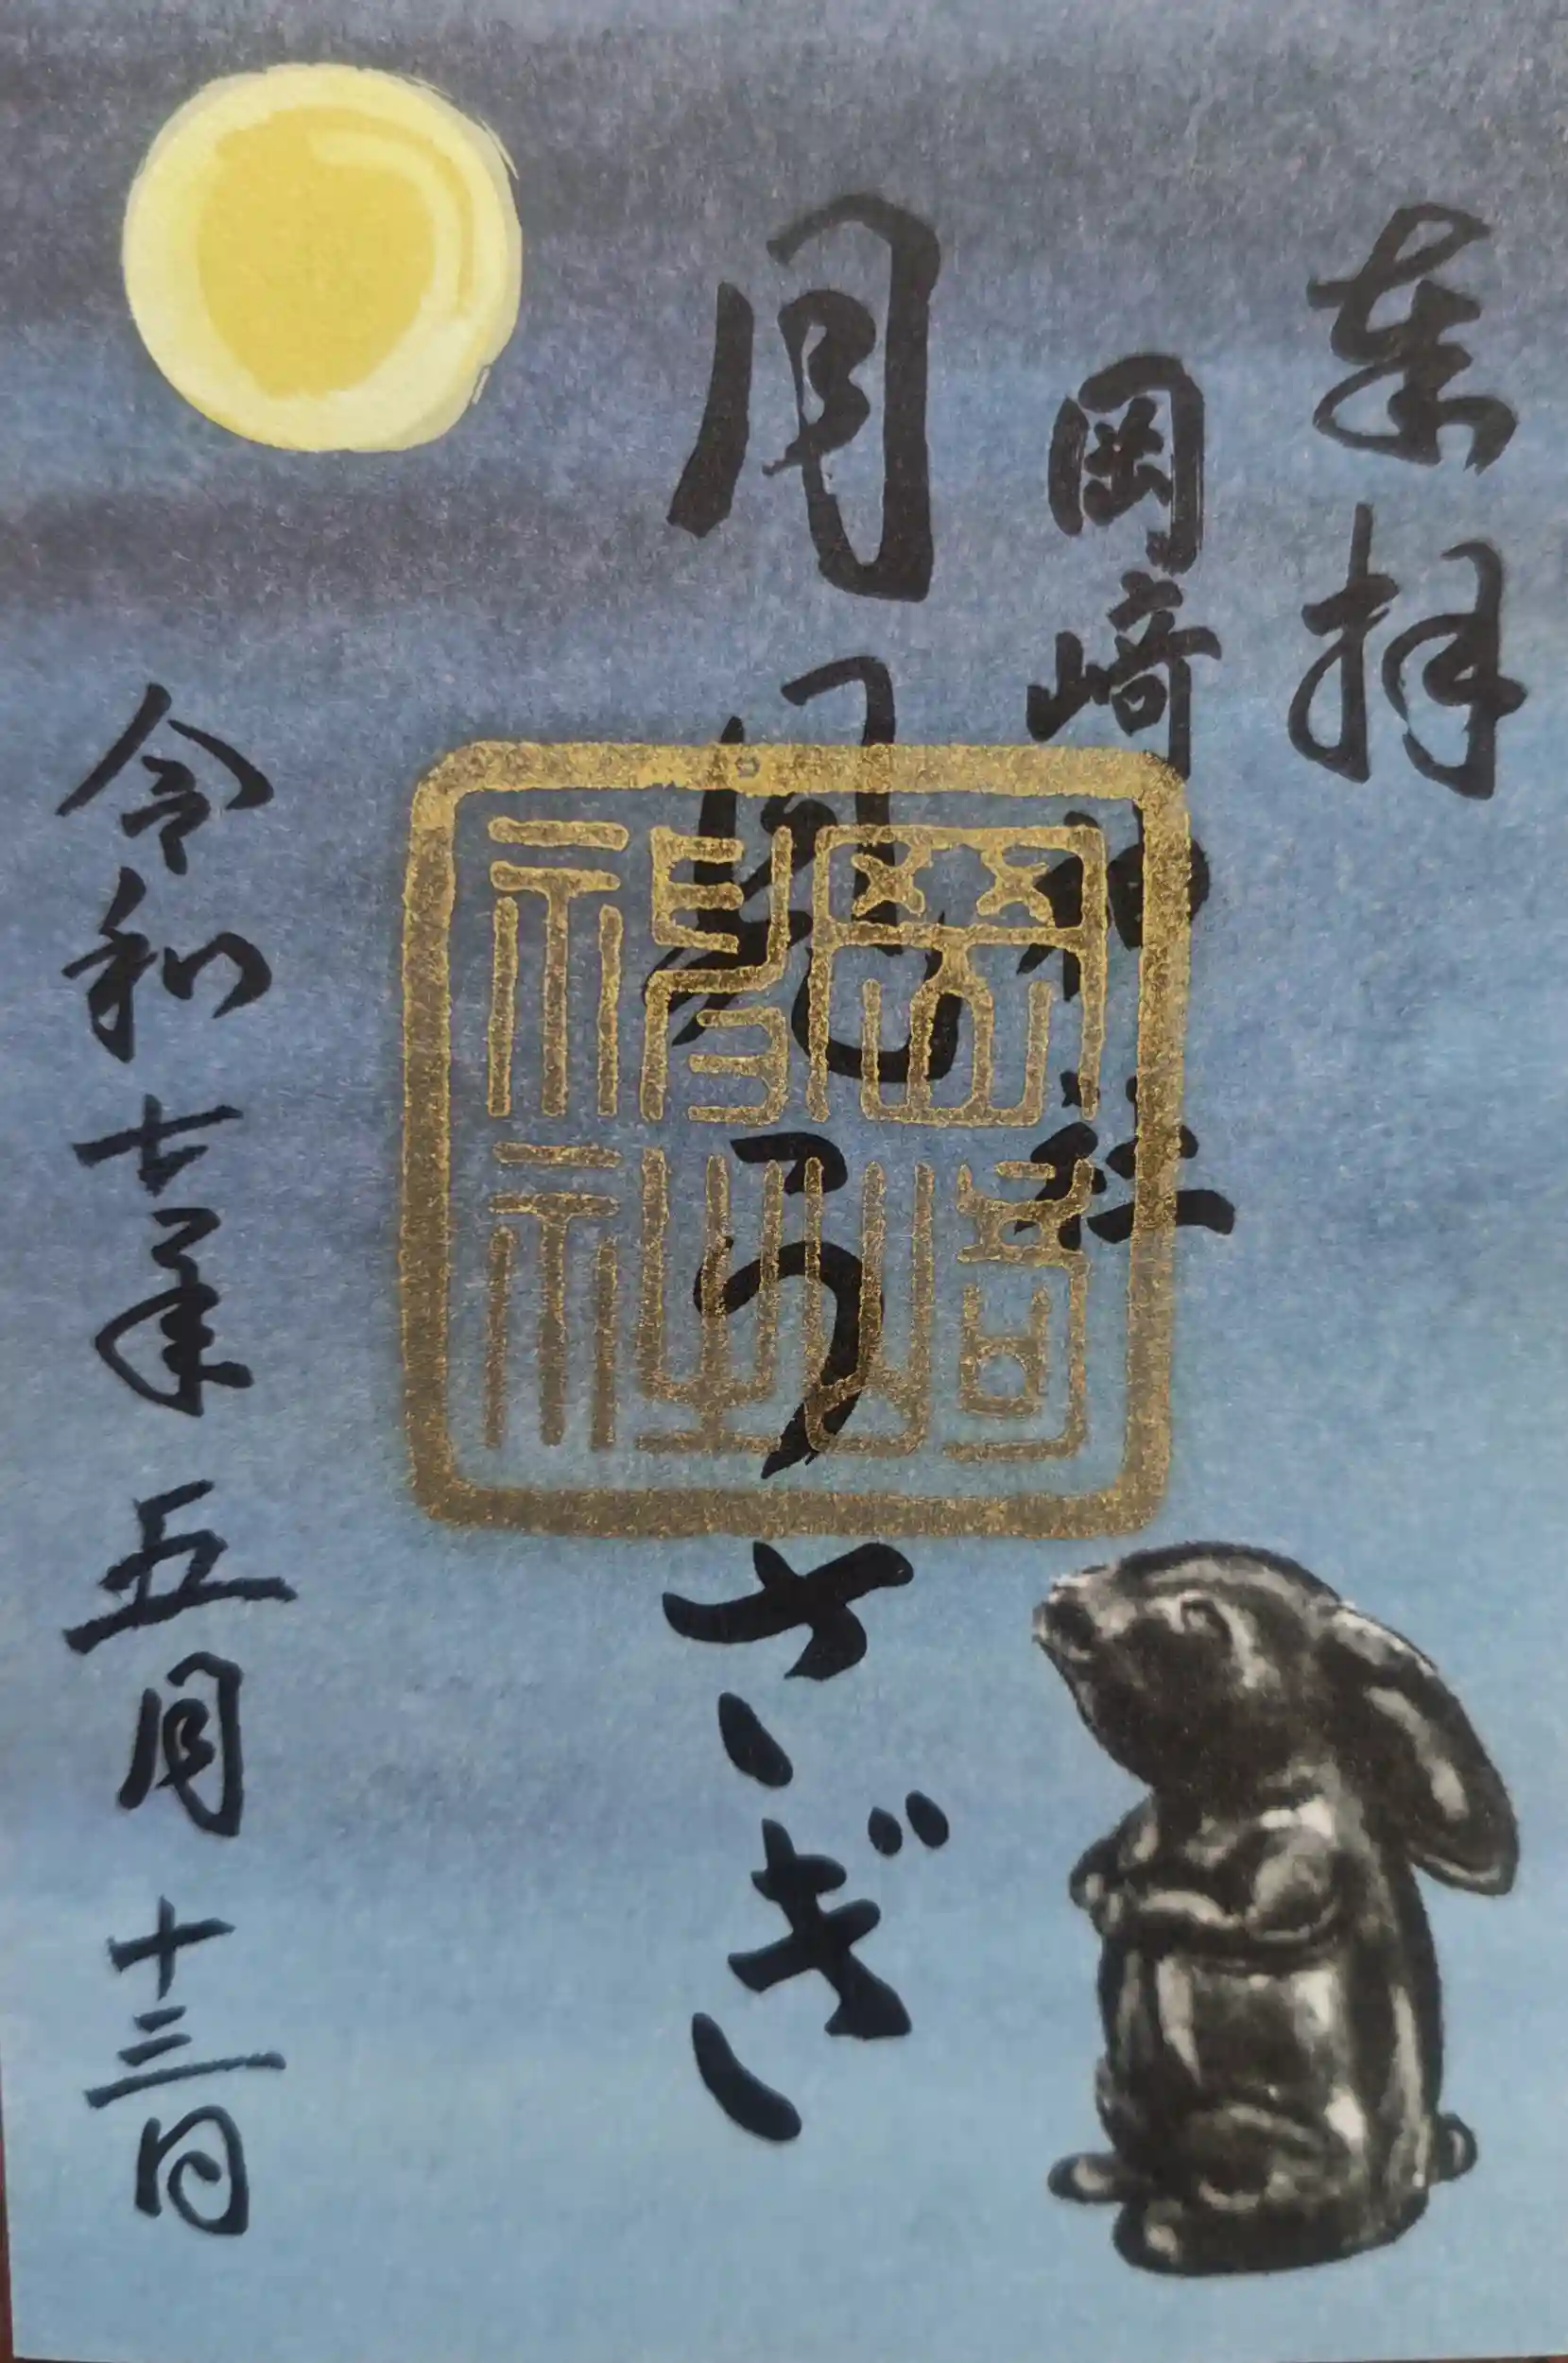 奉拝
岡崎神社
月見うさぎ
令和七年五月十三日
岡崎
神社